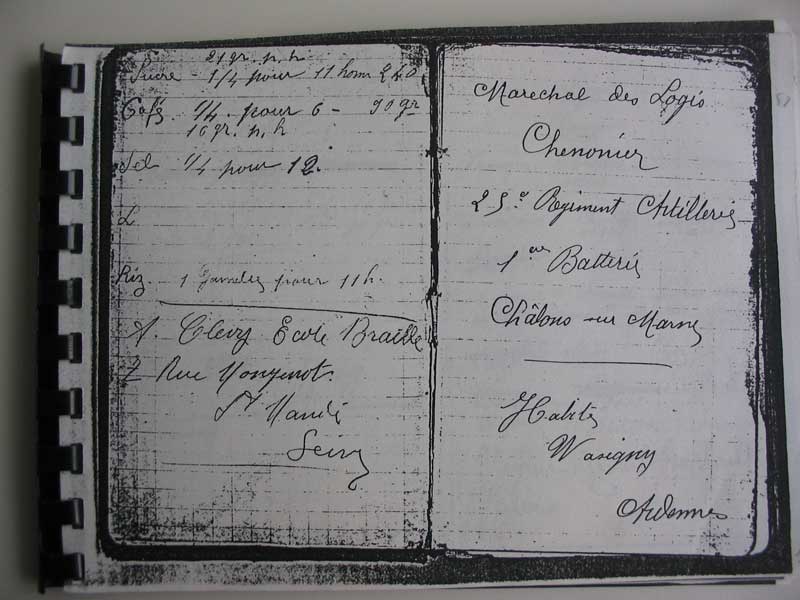 21 gr. p. h.
Sucre 1/4 pour 11 hom 240
Café 1/4 pour 6 - 90 gr
16 gr. p. h
Sel 1/4 pour 12.
L
Riz 1 Gamelle pour 11 h.
A. Clevy Ecole Braille
2 Rue Mongenot.
St Mandé
Seine
Marechal des Logis
Chenonier
25e Regiment Artillerie
1ere Batterie
Châlons sur Marne
Habite
Wasigny
Ardennes